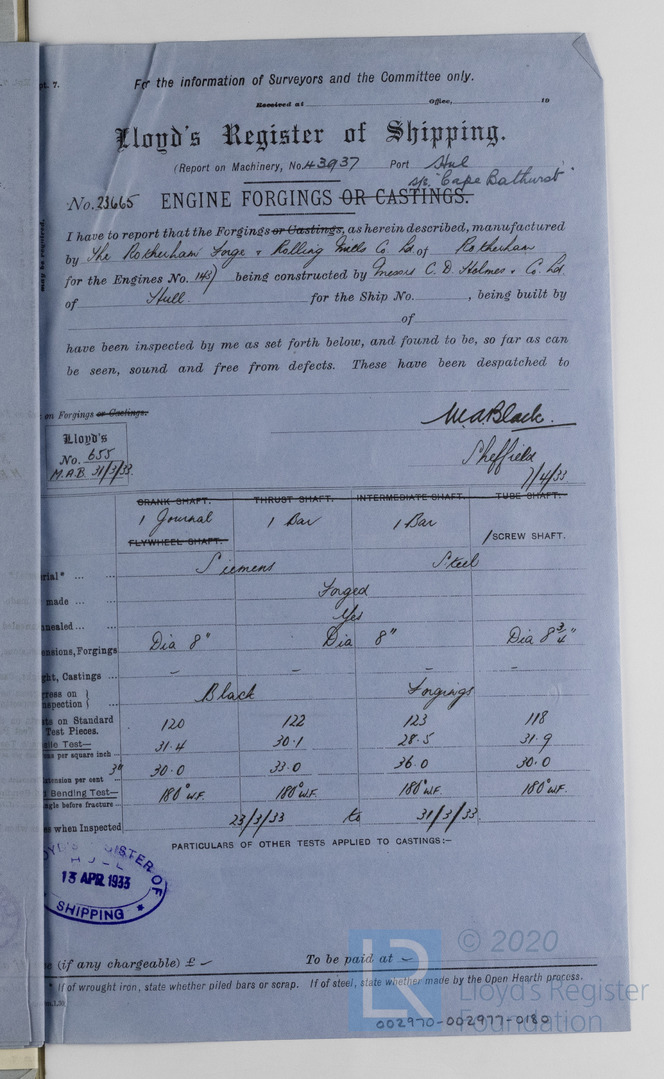 pt. 7.
For the information of Surveyors and the Committee only.
Received at Office, 19
Lloyd's Register of Shipping.
(Report on Machinery, No. 43937 Port Hul
S/S. "Cape Bathurst".
No. 23665 ENGINE FORGINGS OR CASTINGS.
I have to report that the Forgings or Castings, as herein described, manufactured
by The Rotherham Forge & Rolling Mills Co Ld. of Rotherham
for the Engines No. being constructed by Messrs C. D. Holmes & Co. Ld
of Hull for the Ship No. , being built by
of
have been inspected by me as set forth below, and found to be, so far as can
be seen, sound and free from defects. These have been despatched to
may be required.
on Forgings or Castings.
M.A. Black.
Lloyd's
No. 655
M.A.B. 31/3/33.
Sheffield
7/4/33
CRANK SHAFT. THRUST SHAFT. INTERMEDIATE SHAFT. TUBE SHAFT.
1 Journal 1 Bar 1 Bar / SCREW SHAFT.
FLYWHEEL SHAFT.
rial* ... ... Siemens Steel
made ... ... Forged
nnealed ... ... Yes
ensions, Forgings Dia 8" Dia 8" Dia 8 3/4"
ght, Castings ... - - - -
ress on
spection Black Forgings
ts on Standard
Test Pieces. 120 122 123 118
ile Test—
ons per square inch 31.4 30.1 28.5 31.9
3"
xtension per cent 30.0 33.0 36.0 30.0
d Bending Test—
ngle before fracture 180° W.F. 180° W.F. 180° W.F. 180° W.F.
s when Inspected 23/3/33 to 31/3/33.
PARTICULARS OF OTHER TESTS APPLIED TO CASTINGS:—
OYD'S REGISTER OF
HULL
13 APR. 1933
SHIPPING *
e (if any chargeable) £ To be paid at
* If of wrought iron, state whether piled bars or scrap. If of steel, state whether made by the Open Hearth process.
© 2020
LR
Lloyd's Register
Foundation
002970-002977-0180